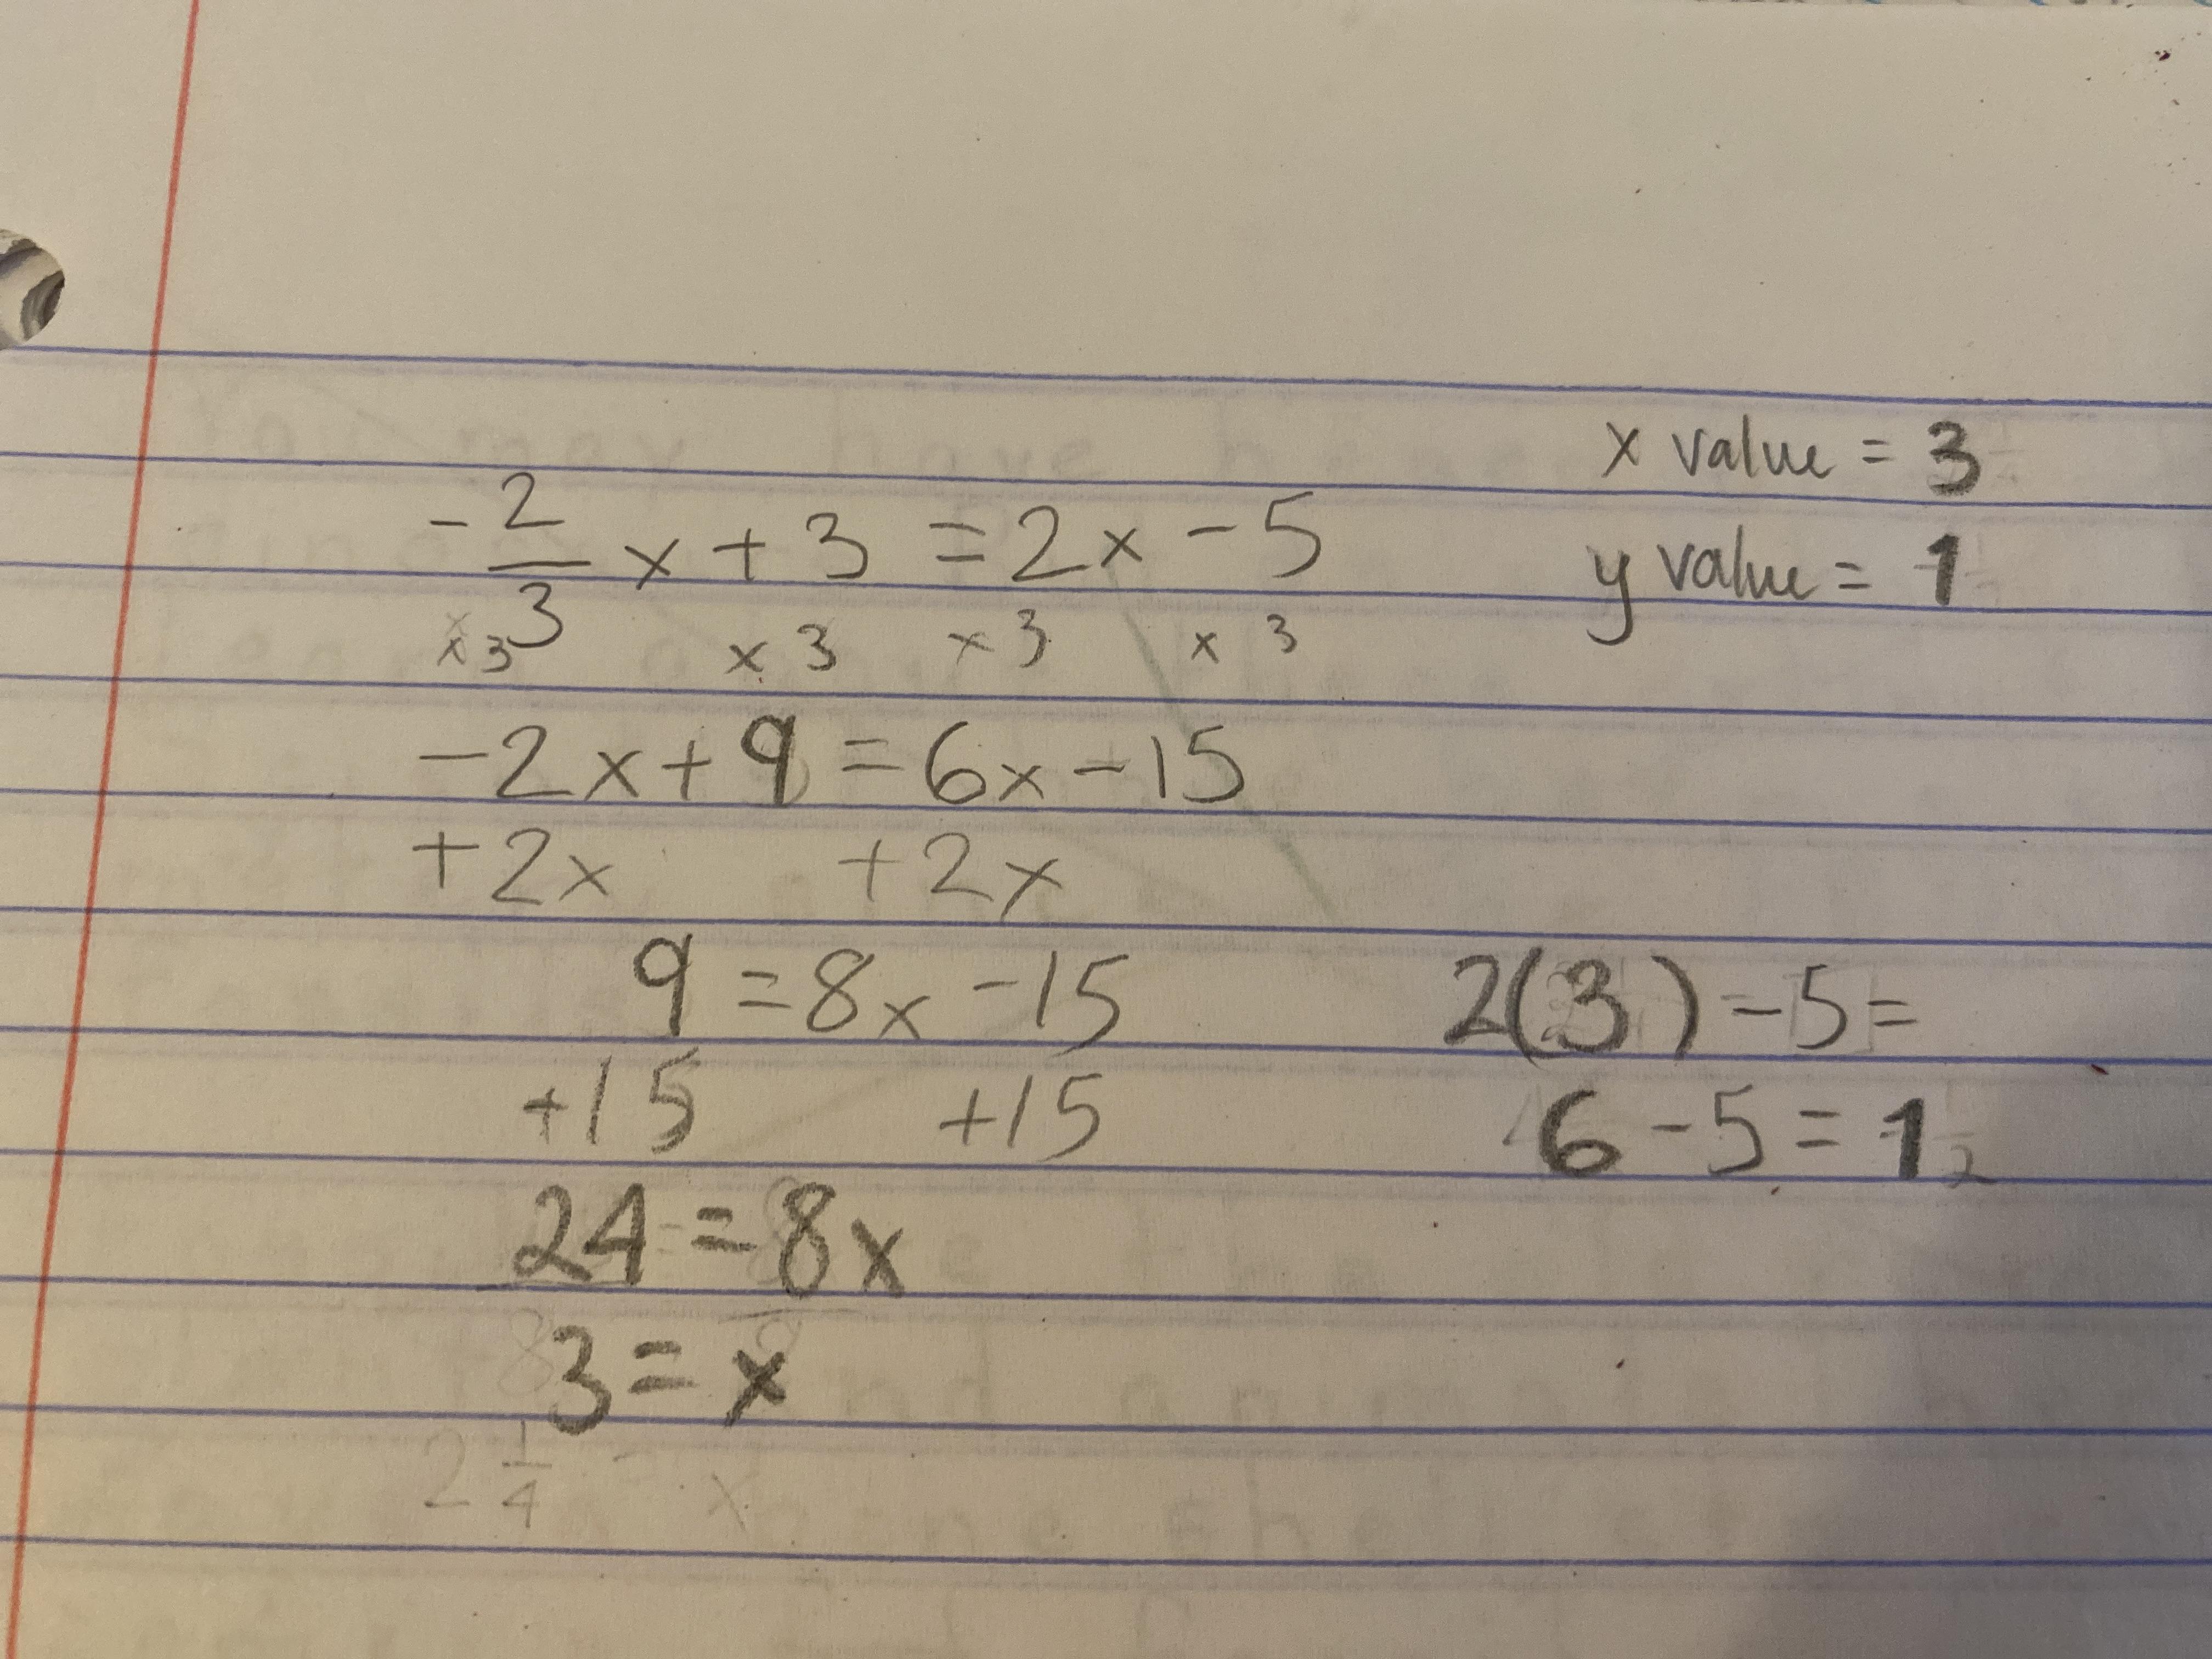 x value = 3
y value = 1
- 2/3 x + 3 = 2x - 5
x 3 x 3 x 3 x 3
-2x + 9 = 6x - 15
+2x +2x
9 = 8x - 15
+15 +15
24 = 8x
3 = x
2 1/4 = x
2(3) - 5 =
6 - 5 = 1